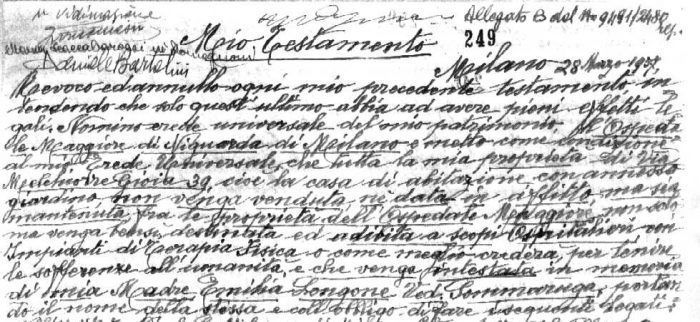 Allegato B del N° 9481/2480
rep.
Mio Testamento
249
Daniele Bartolini
Milano 28 Marzo
Revoco ed annullo ogni mio precedente testamento in
tendendo che solo quest'ultimo abbia ad avere pieni effetti le
gali. Nomino erede universale del mio patrimonio, l'Ospeda
le Maggiore di Niguarda di Milano e metto come condizione
al mio Erede Universale, che tutta la mia proprietà di Via
Melchiorre Gioia 39, cioè la casa di abitazione con annesso
giardino non venga venduta, nè data in affitto ma sia
mantenuta fra le proprietà dell'Ospedale Maggiore, non solo
ma venga bensì destinata ed adibita a scopi Ospitalieri con
Impianti di Terapia Fisica o come meglio crederà, per lenire
le sofferenze all'umanità, e che venga intestata in memoria
di mia Madre Emilia Longone Ved. Sommaruga, portan
do il nome della stessa e coll'obbligo di fare i seguenti legati: